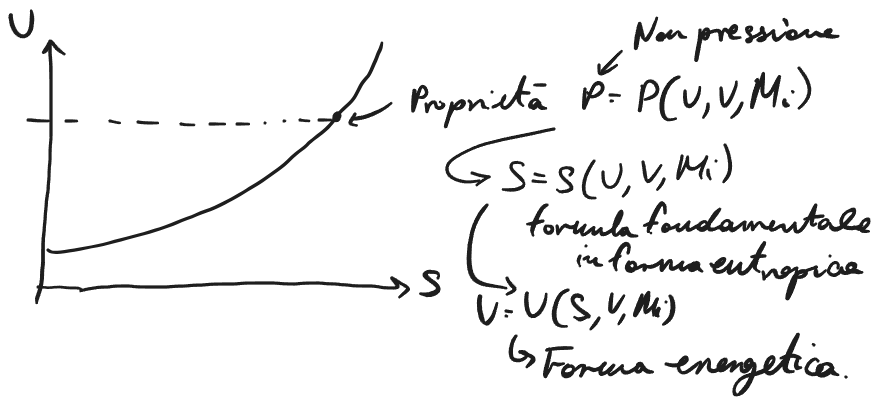 U
Non pressione
Proprietà P = P(U, V, Mi)
S = S(U, V, Mi)
formula fondamentale
in forma entropica
S
U = U(S, V, Mi)
Forma energetica.